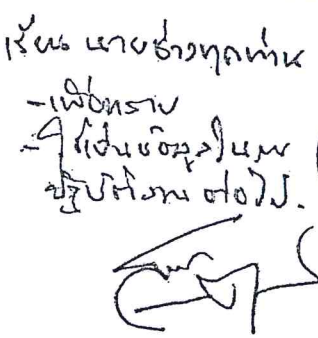 เรียน นายช่างทุกท่าน
-เพื่อทราบ
-ใช้เป็นข้อมูลในการ
ปฏิบัติงานต่อไป.